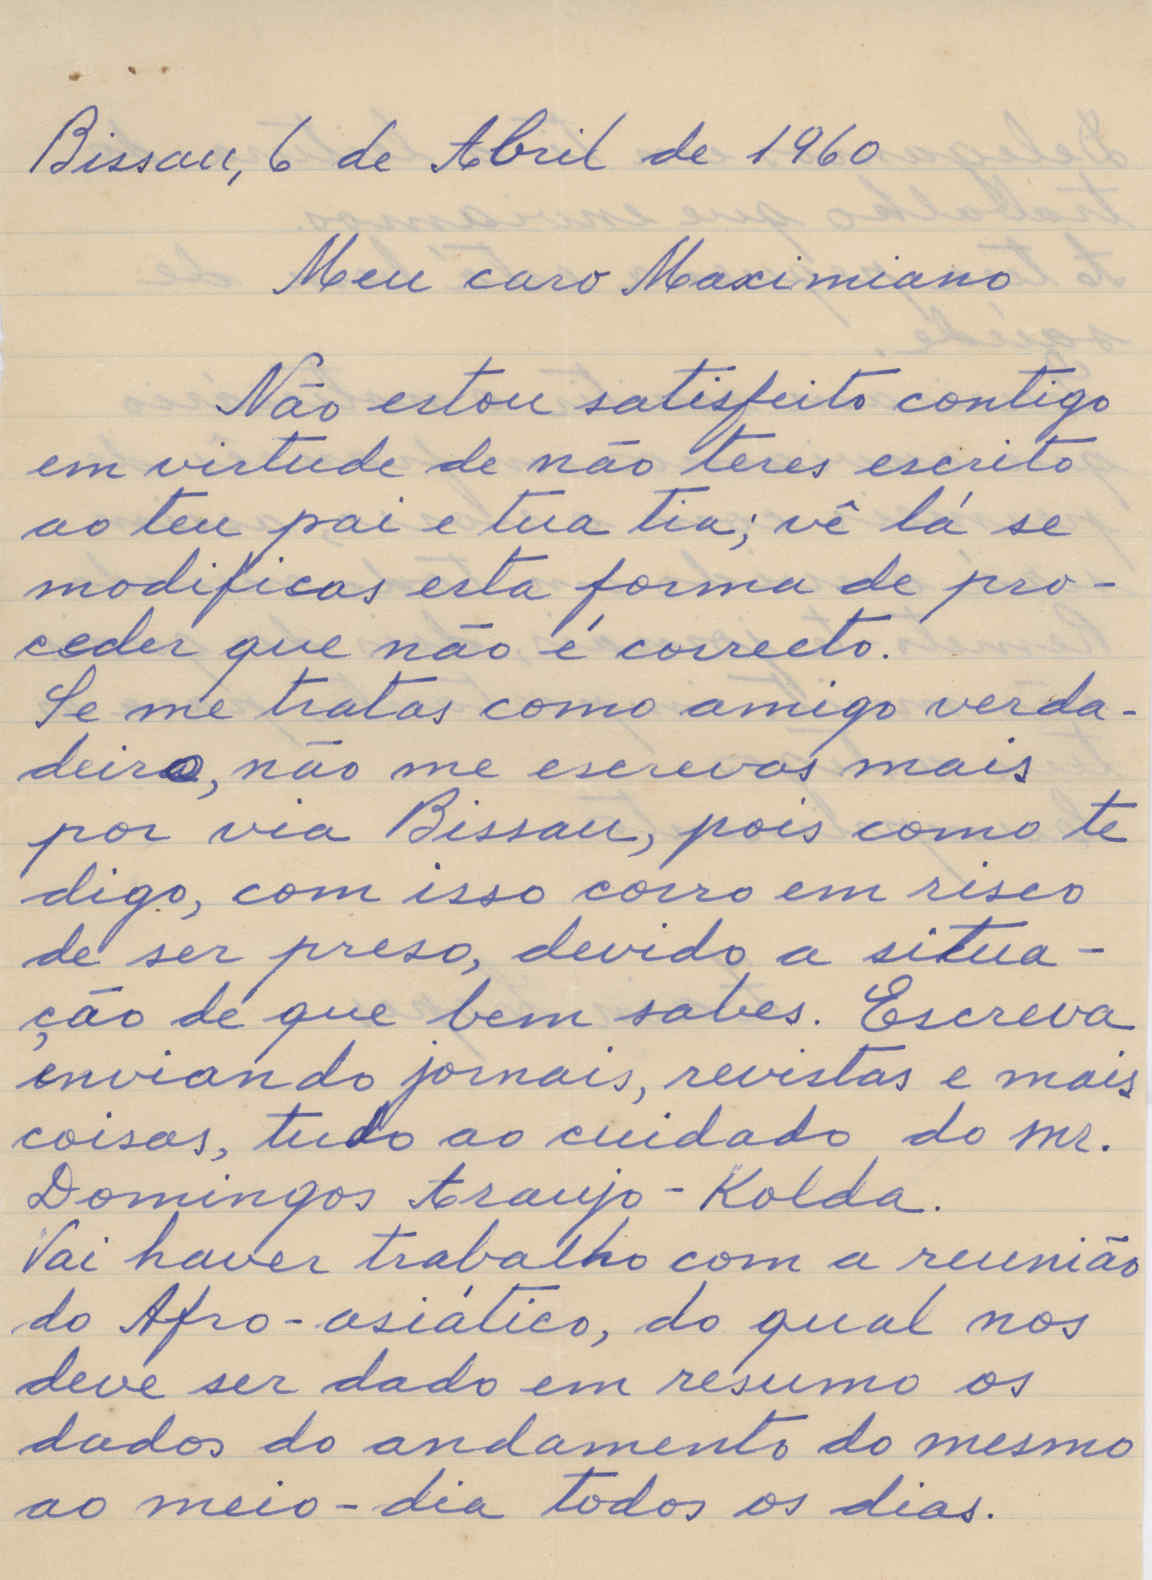 Bissau, 6 de Abril de 1960
Meu caro Maximiano
Não estou satisfeito contigo
em virtude de não teres escrito
ao teu pai e tua tia; vê lá se
modificas esta forma de pro-
ceder que não é correcto.
Se me tratas como amigo verda-
deiro, não me escrevas mais
por via Bissau, pois como te
digo, com isso corro em risco
de ser preso, devido a situa-
ção de que bem sabes. Escreva
enviando jornais, revistas e mais
coisas, tudo ao cuidado do Mr.
Domingos Araujo - Kolda.
Vai haver trabalho com a reunião
do Afro-asiático, do qual nos
deve ser dado em resumo os
dados do andamento do mesmo
ao meio-dia todos os dias.